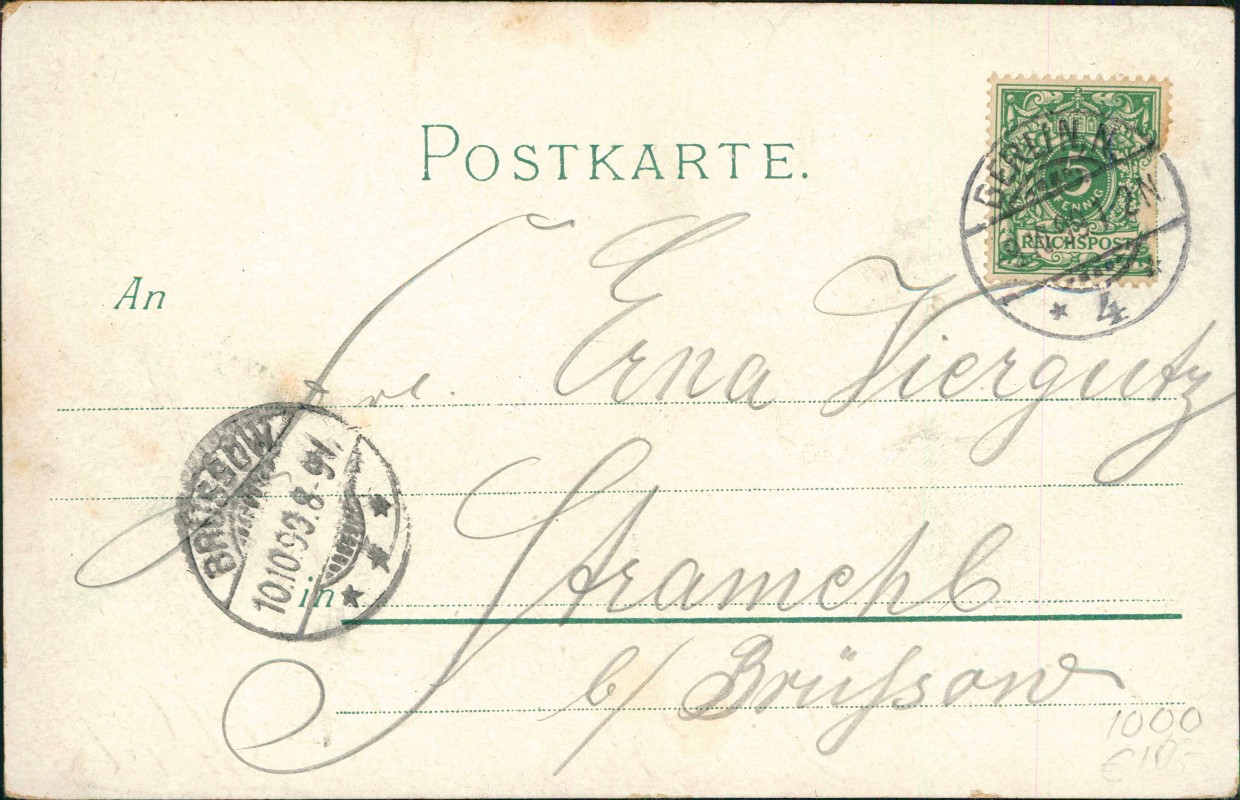 POSTKARTE.
BERLIN N.
4
5
PFENNIG
REICHSPOST
An
Frl. Erna Viergutz
BRÜSSOW
10.10.99.8-9V.
in Stramehl
b/ Brüssow
1000